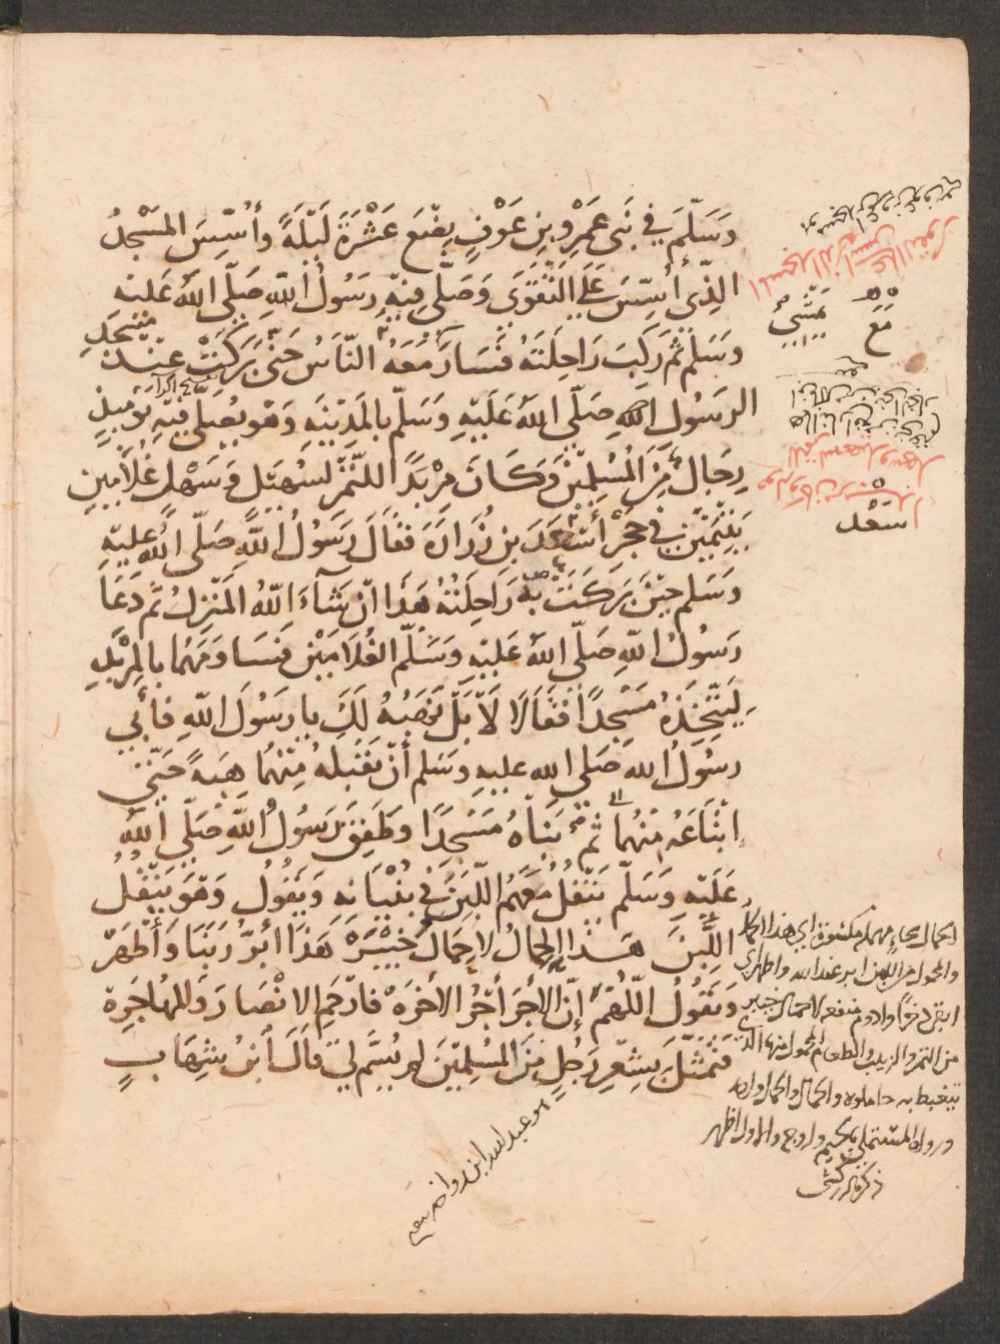 وَسَلَّمَ فِي بَنِي عَمْرِو بنِ عَوْفٍ بِضْعَ عَشْرَةَ لَيْلَةً وأُسِّسَ المَسْجِدُ
الذِي أُسِّسَ عَلَى التَّقْوَى وَصَلَّى فِيهِ رَسُولُ اللّهِ صَلَّى اللهُ عَليْهِ
وَسَلم ثُمَّ رَكِبَ رَاحِلَتَهُ فَسَارَ مَعَهُ النَّاسُ حَتَّى بَرَكَتْ عِنْدَ مَسْجِدِ
الرسُول اللهِ صَلَّى اللهُ عَلَيْهِ وَسَلَّم بِالمَدِينَةِ وَهو يُصَلَّي فِيْهِ يَوْمَيِذٍ
رِجَالٌ مِنَ الْمُسْلِمِيْنَ وَكَانَ مِرْبَدًا للتَّمْرِ لِسُهَيْلٍ وَسَهْلٍ غُلاَمَينِ
يَتِيْمَيْنِ فِي حَجْرِ أَسْعَدَ بنِ زُرَارَةَ فَقَالَ رَسُولُ اللّهِ صَلَّى اللهُ عَليْهِ
وَسَلم حِيْنَ بَرَكَتْ بِهِ رَاحِلَتُهُ هَذَا انْ شَآءَ اللّهُ المَنْزِلُ ثُمَّ دَعَا
رَسُولُ اللّهِ صَلَّى اللهُ عَلَيْهِ وَسَلَّم الغُلَامَيْنِ فَسَاوَمَهُمَا بِالمِرْبَدِ
لِيَتَّخِذَهُ مَسْجِدًا فَقَالَا لَا بَلْ نَهَبُهُ لَكَ يا رَسُولَ اللّهِ فأبَي
رسُولُ الله صَلى الله عليهِ وسَلم أنْ يَقْبَلهُ مِنْهُمَا هِبَةً حَتَّى
ابْتَاعَهُ مِنْهُمَا ثُمَّ بَنَاهُ مَسْجِدًا وطَفِقَ رَسُولُ اللّهِ صَلَّى اللهُ
عَلَيْهِ وَسَلَّم يَنْقُلُ مَعَهُم اللَّبِنَ فِي بُنْيَانِهِ وَيَقُولُ وَهْوَ يَنْقُلُ
اللَّبِنَ هَذَا الحِمَالُ لا حِمَالُ خَيْبَرْ هَذَا أبَرُّ رَبَّنَا وَأَطْهَرْ
وَيَقُولُ اللّهُمَّ إنَّ الأجْرَ أَجْرُ الاَخِرَهْ فَارْحَمِ الانْصَارَ وَالمُهَاجِرَة
فَتَمَثَّلَ بِشِعْرِ رَجُلٍ مِنَ المُسْلِمِيْنَ لم يُسَمَّ لِي قَالَ ابْنُ شِهَابٍ
مع
يَمْشِيْ
اسَعْد
الحمال بحاء مهمله مكسورة اي هذا الحمل
والمحمول من اللبن ابر عند الله واطهر اي
ابقى ذخرا وادوم منفعه لا حمال خيبر
من التمر والزبيب والطعام المحمول منها الذي
يتغبط به حاملوه والحمال والحمل واحد
ورواه المستملي بالجيم والاول اظهر
ذكره الزركشي
هو عبد الله ابن رواحه